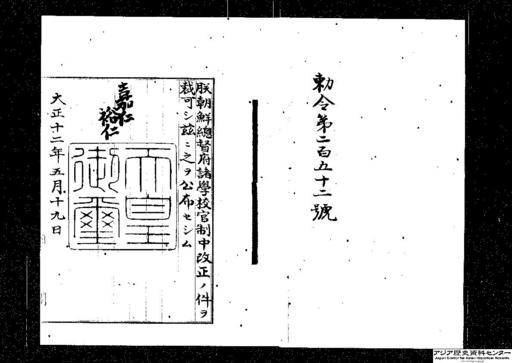 勅令第二百五十二號
朕朝鮮總督府諸學校官制中改正ノ件ヲ
裁可シ茲ニ之ヲ公布セシム
嘉仁
裕仁
天皇
御璽
大正十二年五月十九日
アジア歴史資料センター
Japan Center for Asian Historical Records